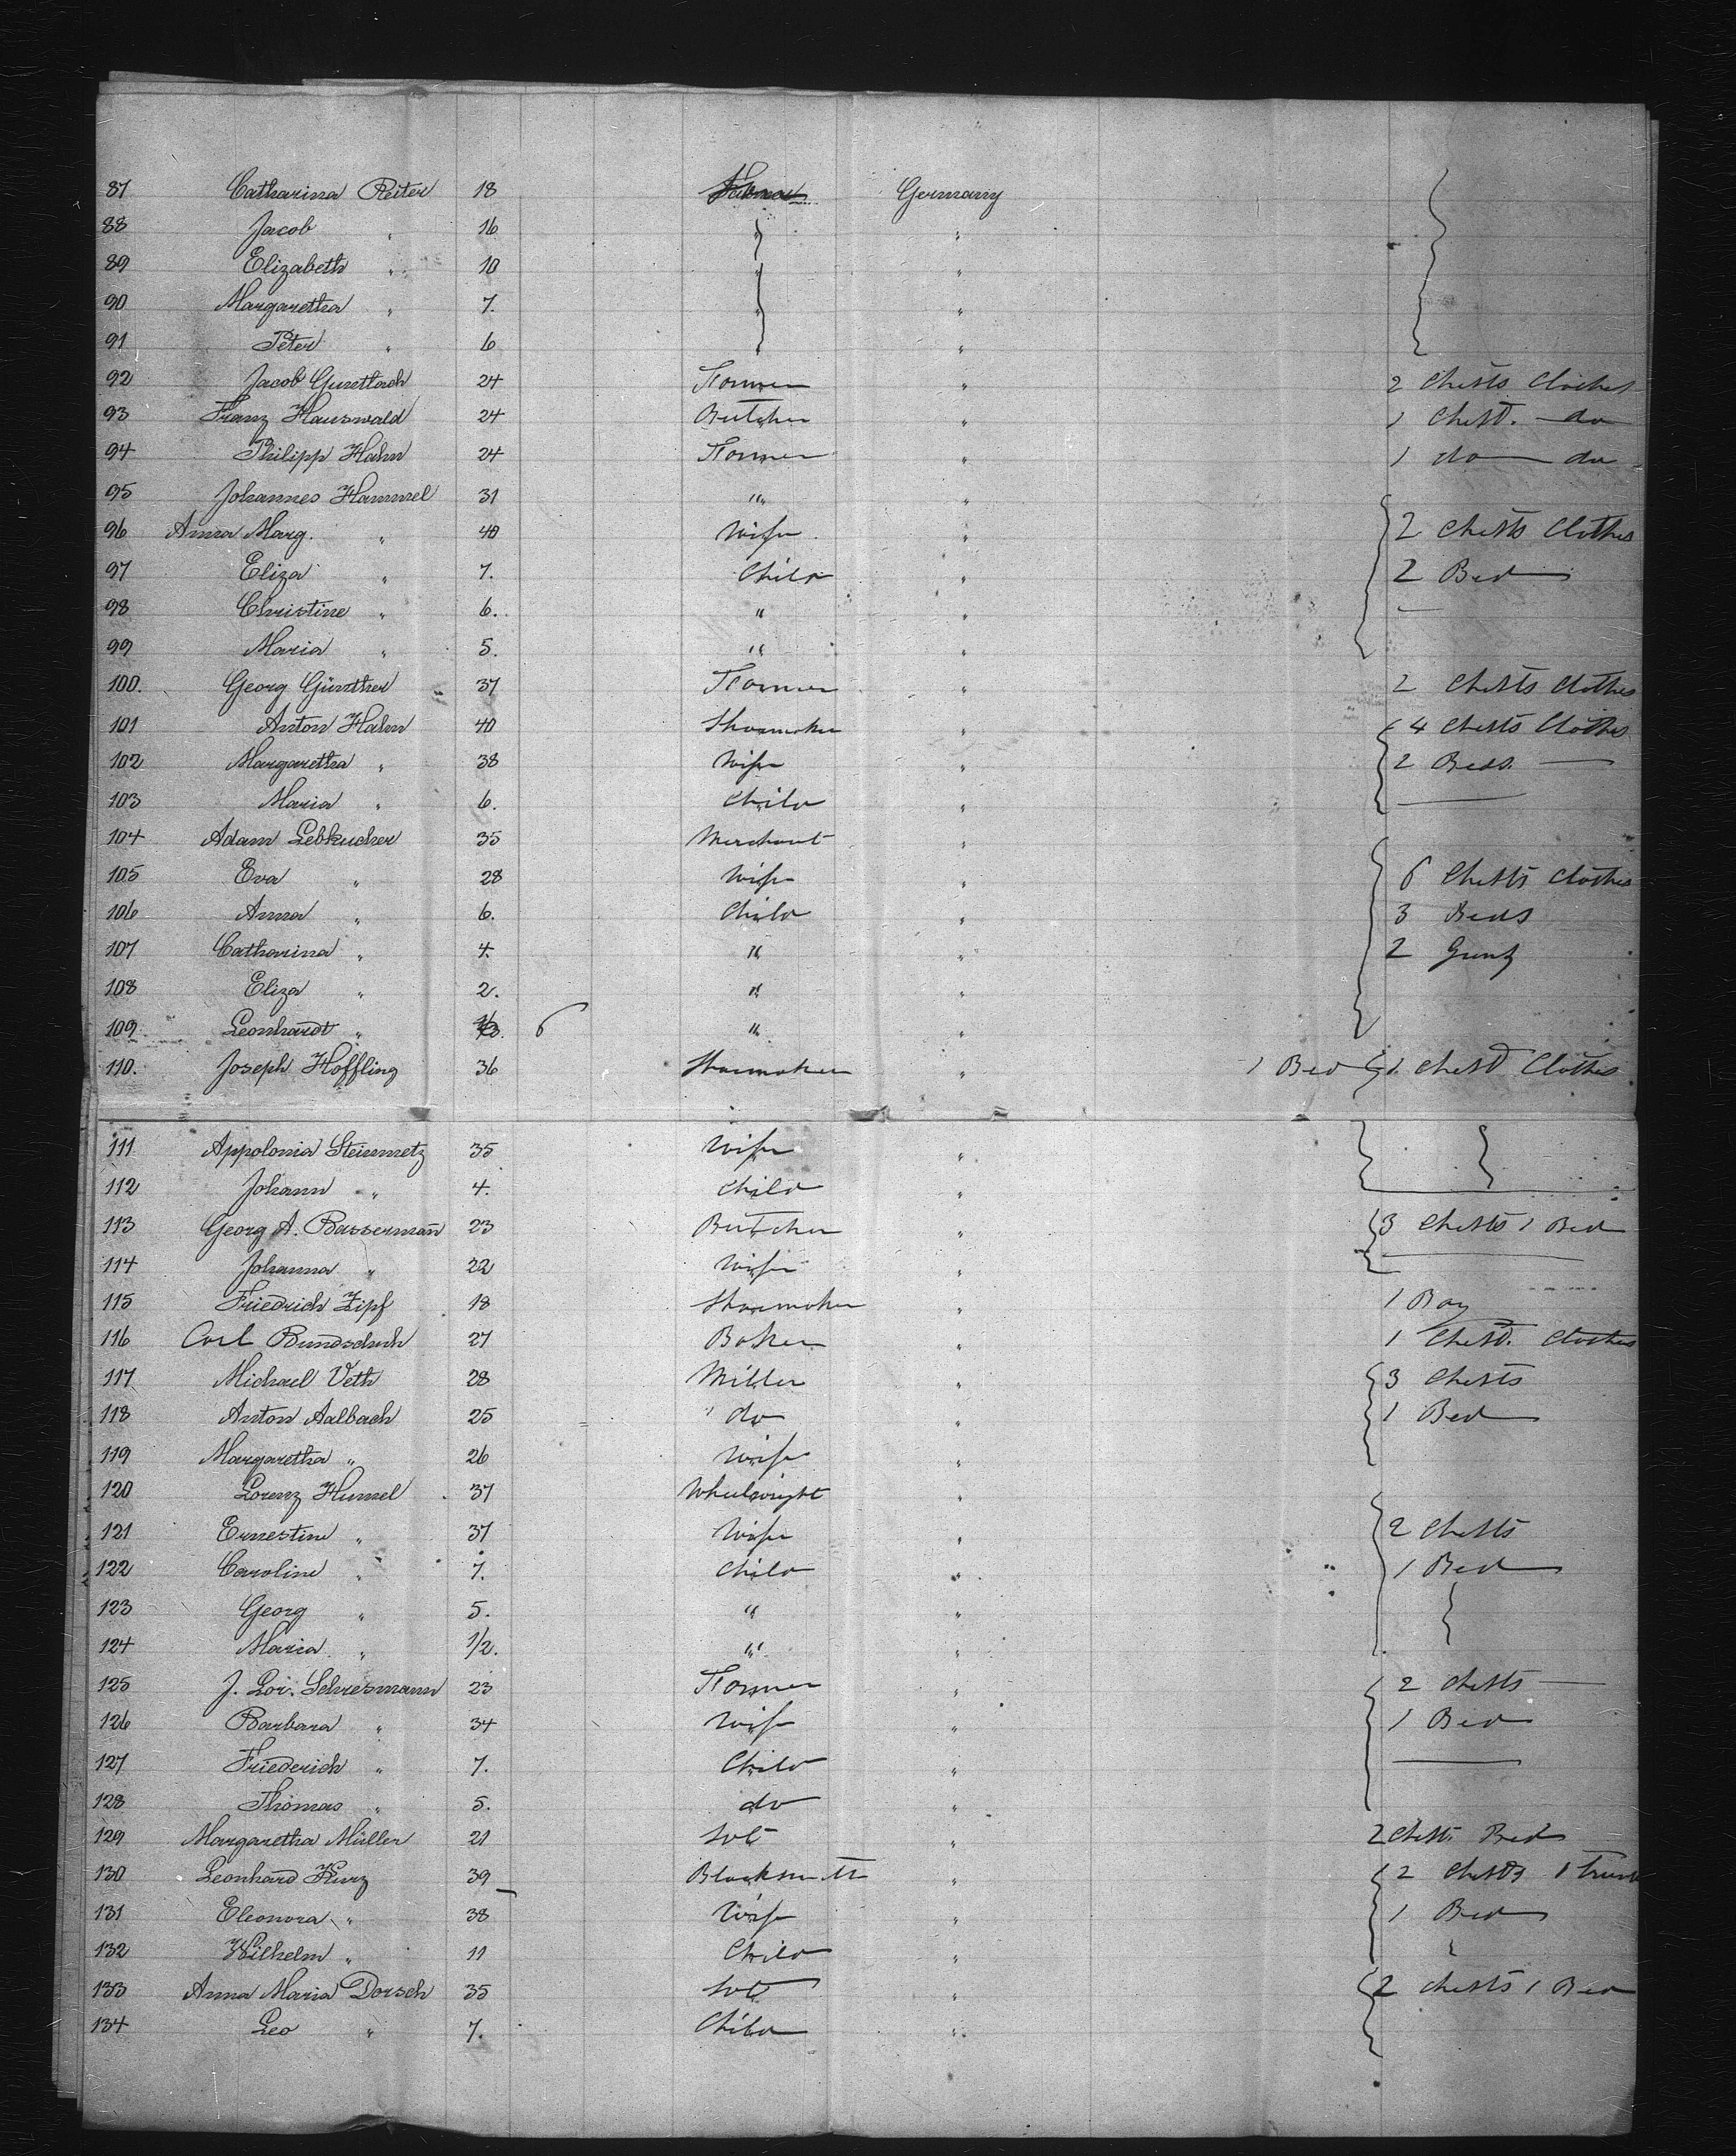 87 Catharina Reiter 18 Germany
88 Jacob " 16 " "
89 Elizabeth " 10 " "
90 Margaretha " 7. " "
91 Peter " 6 " "
92 Jacob 24 Farmer " 2 Chests Clothes
93 Franz Hauswald 24 Butcher " 1 Chest. do
94 Philipp Hahn 24 Farmer " 1 do do
95 Johannes Hammel 31 " "
96 Anna Marg. " 40 Wife " 2 Chests Clothes
97 Eliza " 7. Child " 2 Bed
98 Christine " 6. " "
99 Maria " 5. " "
100. Georg Günther 37 Farmer " 2 Chests Clothes
101 Anton Hahn 40 Shoemaker " 4 Chests Clothes
102 Margaretha " 38 Wife " 2 Beds.
103 Maria " 6. Child "
104 Adam Lebkucher 35 Merchant "
105 Eva " 28 Wife " 6 Chests Clothes
106 Anna " 6. Child " 3 Beds
107 Catharina " 4. " " 2
108 Eliza " 2. " "
109. Leonhardt " 6 " "
110. Joseph Hoffling 36 Shoemaker " 1 Bed 1 Chest Clothes
111 Appolonia Steinmetz 35 Wife "
112 Johann " 4. Child "
113 Georg A. Bassermañ 23 Butcher " 3 Chests 1 Bed
114 Johanna " 22 Wife "
115 Friedrich Zipf 18 Shoemaker " 1
116 Carl Bundschuh 27 Baker " 1 Chest. Clothes
117 Michael Veth 28 Miller " 3 Chests
118 Anton Aalbach 25 do " 1 Bed
119 Margaretha " 26 Wife "
120 Lorenz Humel 37 Wheelwright "
121 Ernestine " 37 Wife " 2 Chests
122 Caroline " 7. Child " 1 Bed
123 Georg " 5. " "
124 Maria " 1/2. " "
125 J. Lor. 23 Farmer " 2 Chests
126 Barbara " 34 Wife " 1 Bed
127 Friederich " 7. Child "
128 Thomas " 5. do "
129 Margaretha Müller 21 " 2 Chest. Bed
130 Leonhard Kurz 39 Blacksmith " 2 Chests 1 Trunk
131 Eleonora " 38 Wife " 1 Bed
132 Wilhelm " 11 Child "
133 Anna Maria Dorsch 35 " 2 Chests 1 Bed
134 Leo " 7. Child "